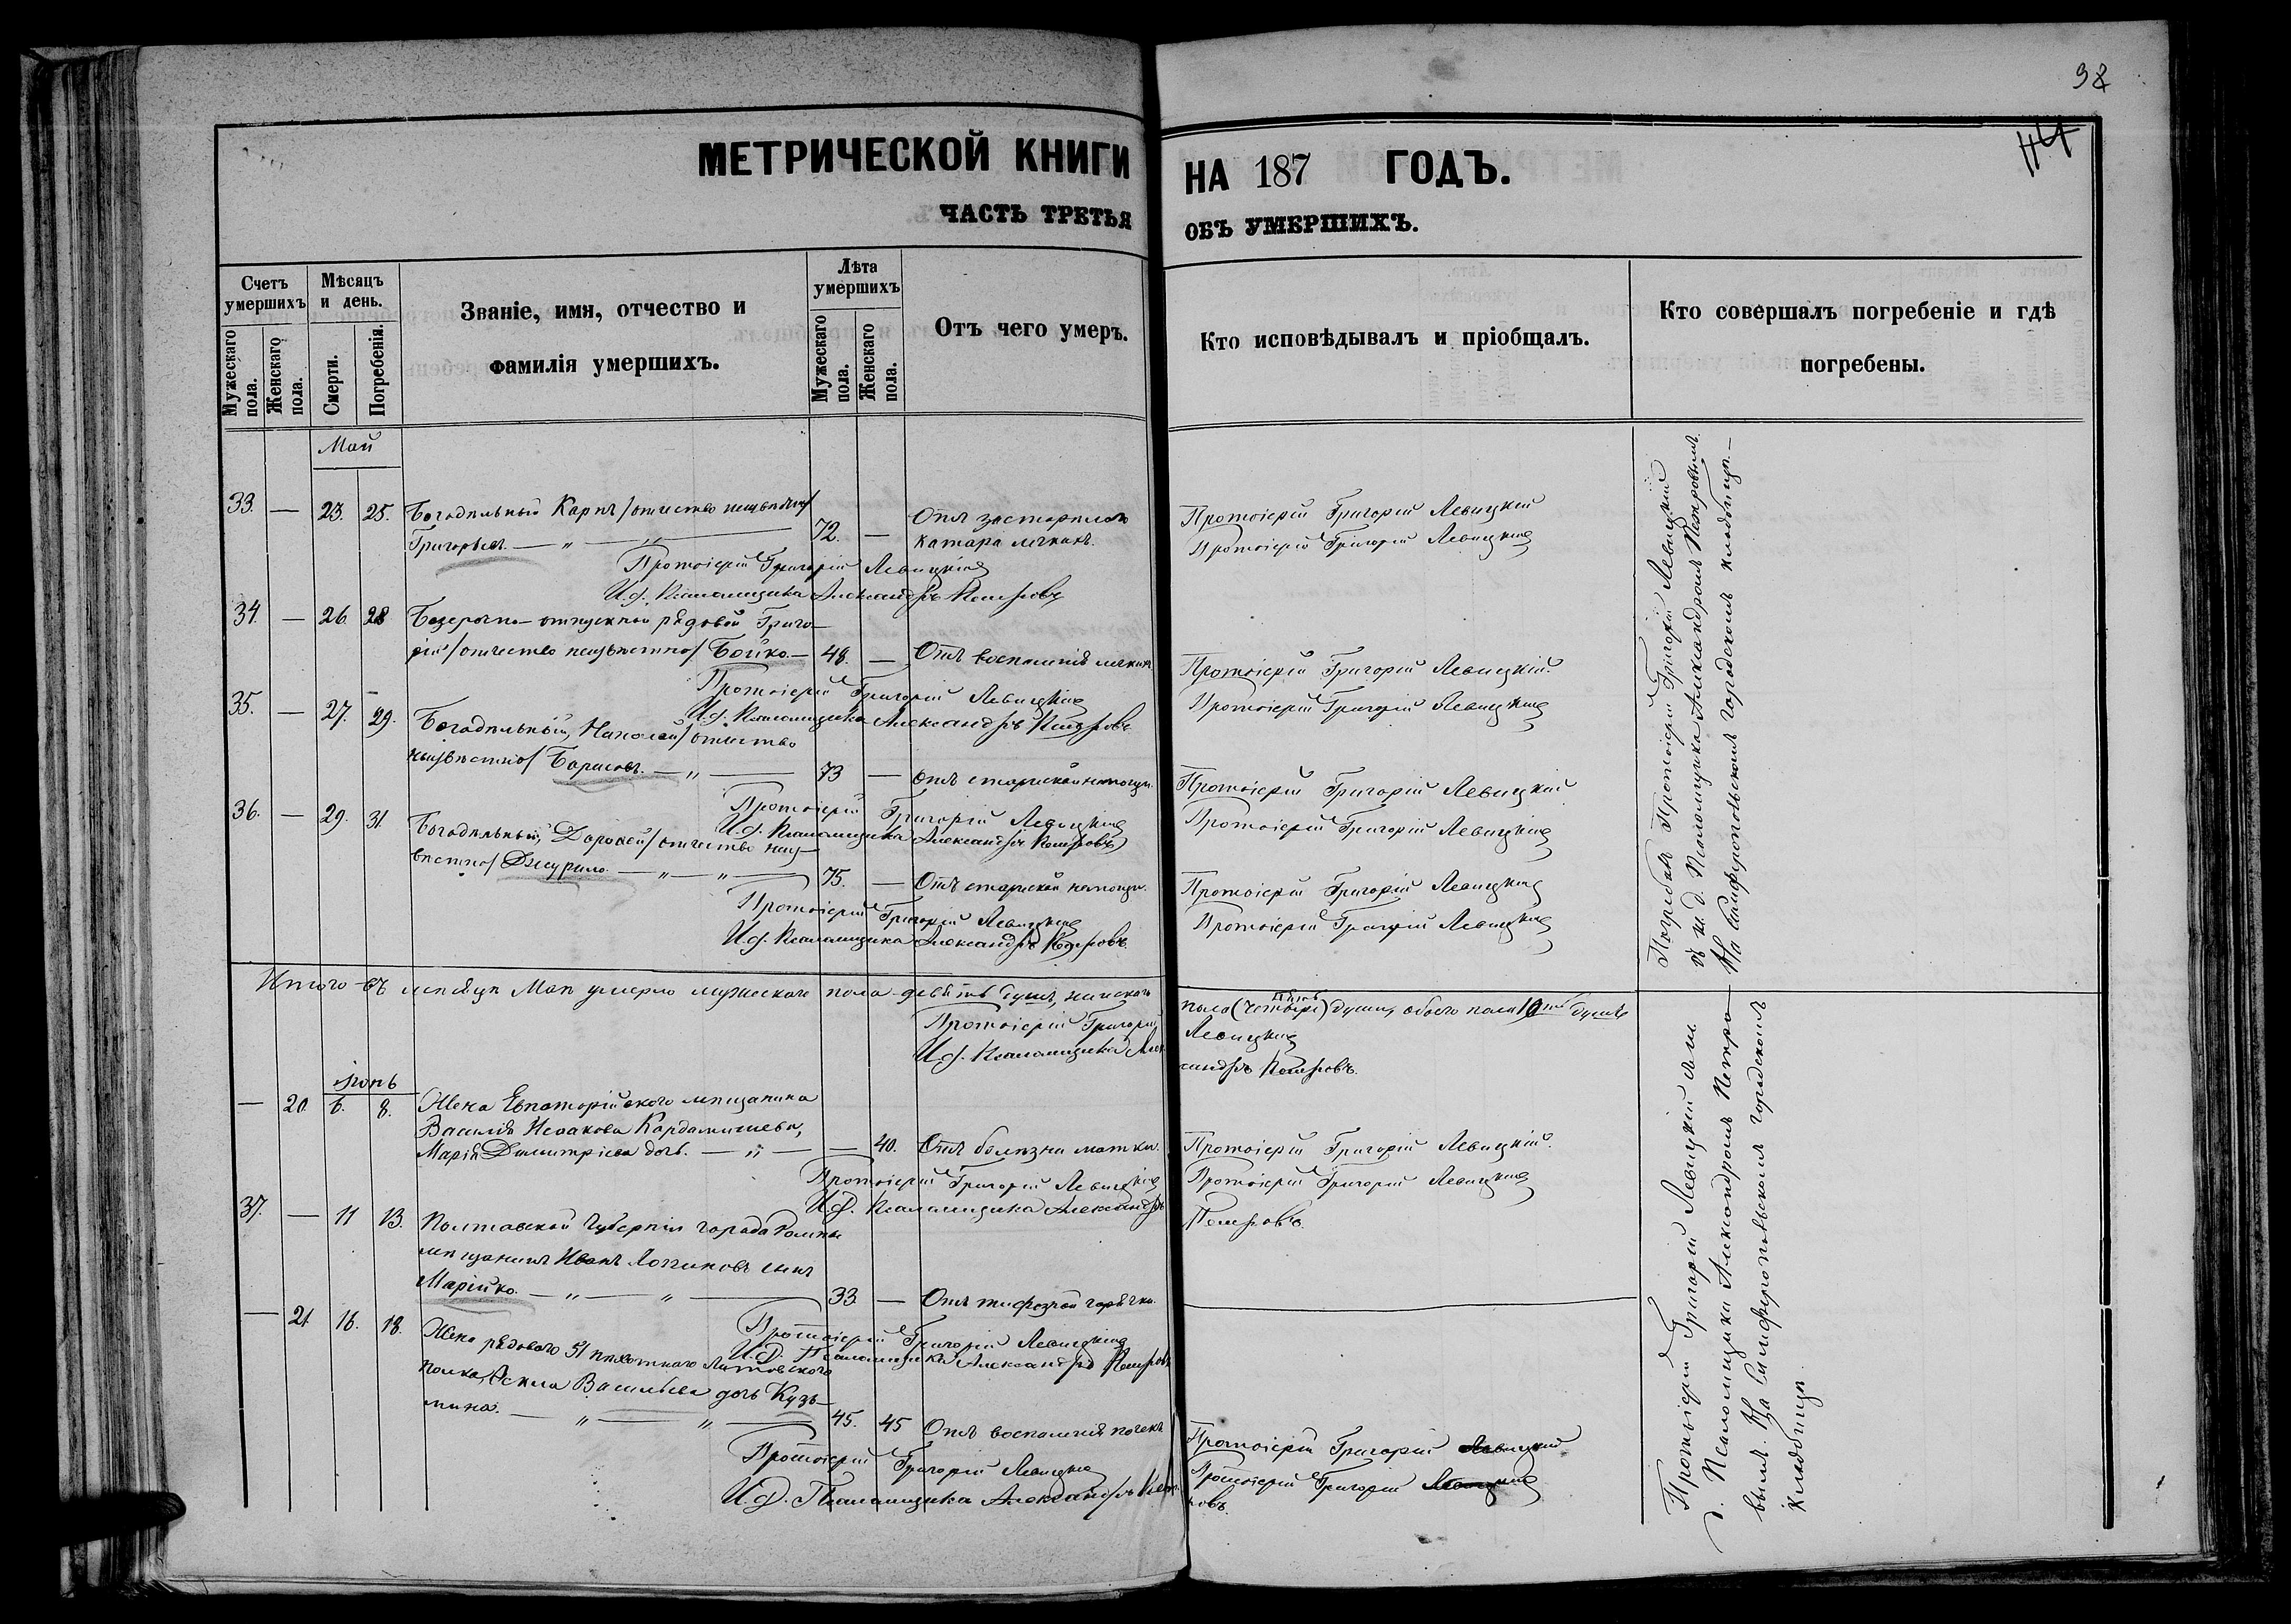 98
44
МЕТРИЧЕСКОЙ КНИГИ НА 187 ГОДЪ.
ЧАСТЬ ТРЕТЬЯ ОБЪ УМЕРШИХЪ.
Счетъ умершихъ
Мѣсяцъ и день.
Званіе, имя, отчество и фамилія умершихъ.
Лѣта умершихъ
Отъ чего умеръ.
Кто исповѣдывалъ и пріобщалъ.
Кто совершалъ погребеніе и гдѣ погребены.
Мужескаго пола.
Женскаго пола.
Смерти.
Погребенія.
Мужескаго пола.
Женскаго пола.
Май
33. — 23. 25. Богадѣльный Карпъ /отчество неизвѣстно/
Григорьевъ. — „ — 72. — Отъ застарѣлаго катара легкихъ.
Протоіерей Григорій Левицкій
Протоіерей Григорій Левицкій
Протоіерей Григорій Левицкій
И.д. Псаломщика Александръ Петровъ
34. — 26. 28 Безсрочно-отпускной рядовой Григо-
рій /отчество неизвѣстно/ Бойко. — 48. — Отъ воспаленія легкихъ
Протоіерей Григорій Левицкій.
Протоіерей Григорій Левицкій
Протоіерей Григорій Левицкій
И.д. Псаломщика Александръ Петровъ
35. — 27. 29. Богадѣльный, Николай /отчество
неизвѣстно/ Борисовъ. — „ — 73 — Отъ старческой немощи.
Протоіерей Григорій Левицкій
Протоіерей Григорій Левицкій
Протоіерей Григорій Левицкій
И.д. Псаломщика Александръ Петровъ
36. — 29. 31. Богадѣльный, Дорофей /отчество неиз-
вѣстно/ Джурило. — „ — „ — 75. — Отъ старческой немощи.
Протоіерей Григорій Левицкій
Протоіерей Григорій Левицкій
Протоіерей Григорій Левицкій
И.д. Псаломщика Александръ Петровъ
Погребалъ Протоіерей Григорій Левицкій
съ и. д. Псаломщика Александромъ Петровымъ
На Симферопольскомъ городскомъ кладбищѣ. —
Итого въ мѣсяцѣ Маѣ умерло мужескаго пола девять душъ, женскаго
пола (четыре) душъ, обоего пола душъ
Протоіерей Григорій Левицкій
И.д. Псаломщика Александръ Петровъ.
Іюнь
— 20. 6. 8. Жена Евпаторійскаго мѣщанина
Василія Исаакова Кардамишева,
Марія Димитріева дочь. — „ — — 40. Отъ болѣзни матки.
Протоіерей Григорій Левицкій.
Протоіерей Григорій Левицкій
Протоіерей Григорій Левицкій
И.д. Псаломщика Александръ Петровъ.
37. — 11 13. Полтавской Губерніи города Ромны
мѣщанинъ Иванъ Логгиновъ сынъ
Марійко. — „ — „ — 33 — Отъ тифозной горячки.
Протоіерей Григорій Левицкій
И.д. Псаломщика Александръ Петровъ
— 21. 16. 18. Жена рядоваго 51 пѣхотнаго Литовскаго
полка, Васильева дочь Кузь-
мина. — „ — „ — 45. 45 Отъ воспаленія почекъ
Протоіерей Григорій Левицкій
Протоіерей Григорій Левицкій
Протоіерей Григорій Левицкій
И.д. Псаломщика Александръ Петровъ.
Протоіерей Григорій Левицкій
д. Псаломщика Александромъ Петро-
вымъ. На Симферопольскомъ городскомъ
кладбищѣ.